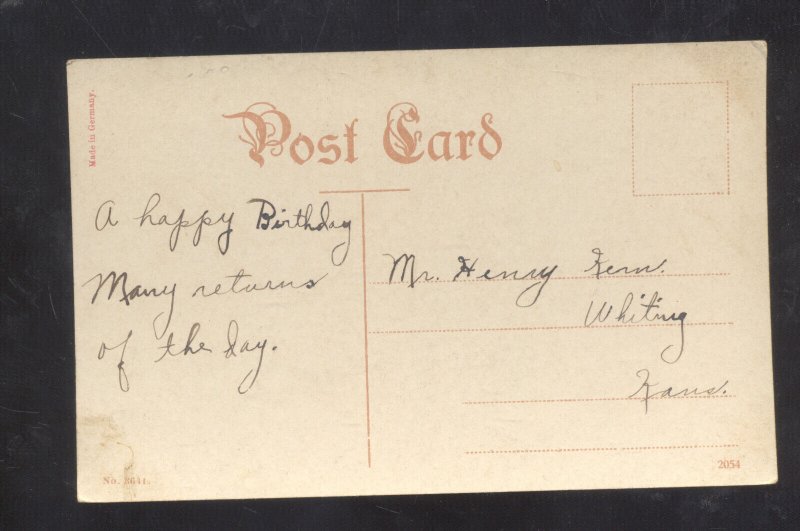 Post Card
Made in Germany.
A happy Birthday
Many returns
of the day.
Mr. Henry Kern.
Whiting
Kans.
No. 3641.
2054